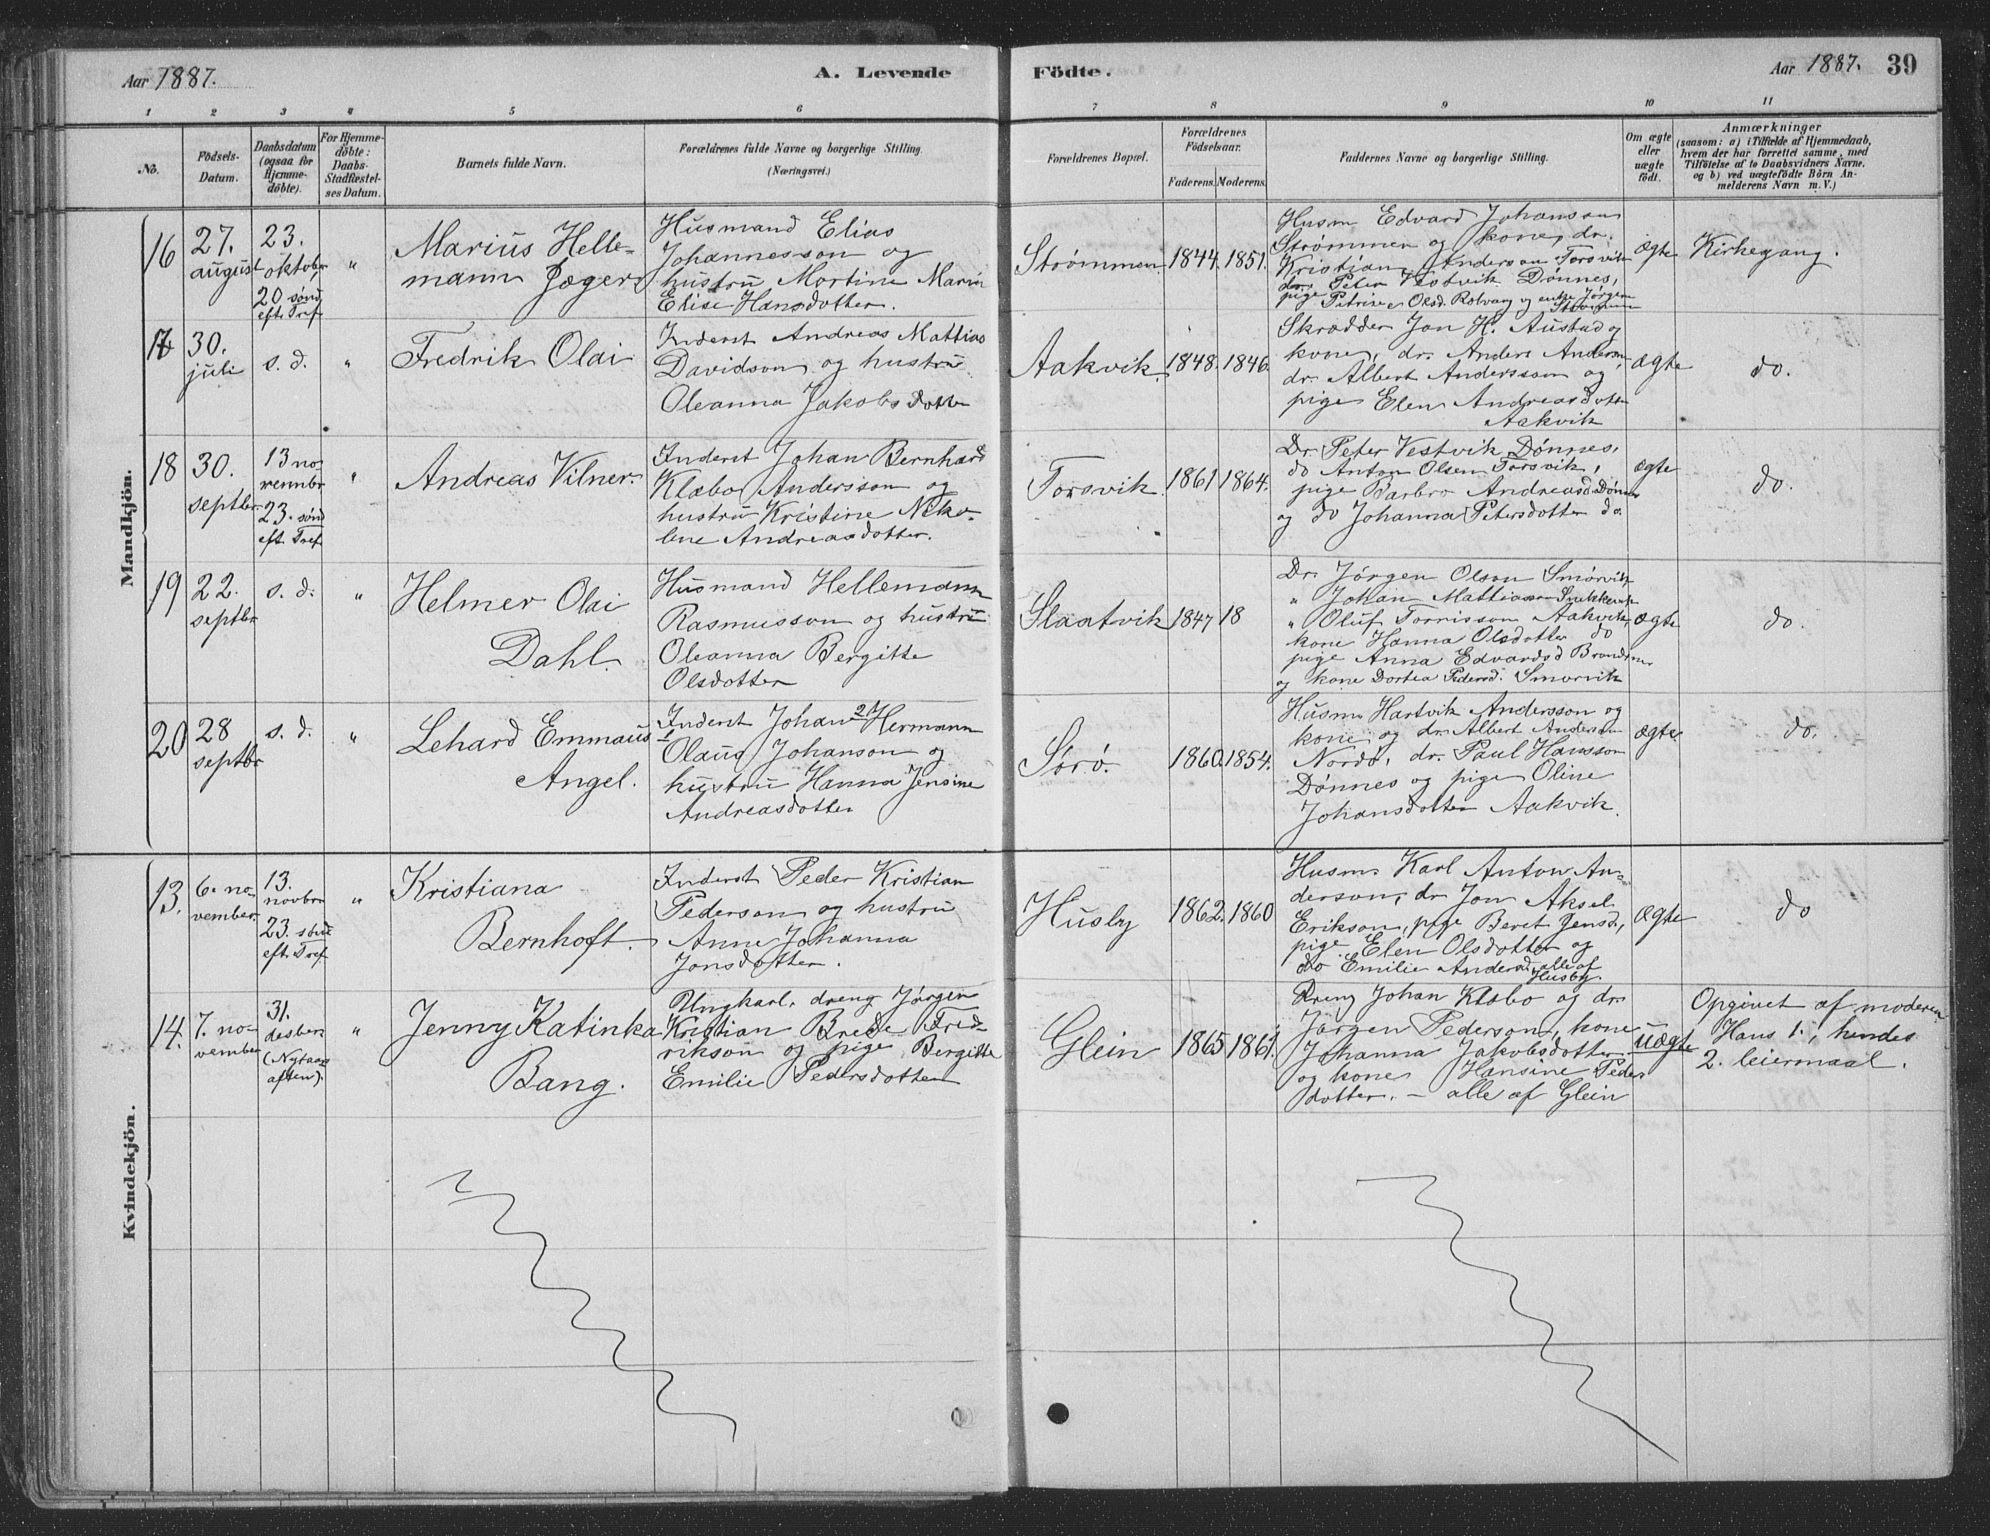 Aar 1887.
A. Levende
Födte.
Aar 1887.
39
1 2 3 4 5 6 7 8 9 10 11
No.
Födsels-
Datum.
Daabsdatum
(ogsaa for
Hjemme-
döbte).
For Hjemme-
döbte:
Daabs-
Stadfæstel-
ses Datum.
Barnets fulde Navn.
Forældrenes fulde Navne og borgerlige Stilling.
(Næringsvei.)
Forældrenes Bopæl.
Forældrenes
Födselsaar.
Faderens. Moderens.
Faddernes Navne og borgerlige Stilling.
Om ægte
eller
uægte
födt.
Anmærkninger
(saasom: a) i Tilfælde af Hjemmedaab,
hvem der har forrettet samme, med
Tilföielse af to Daabsvidners Navne,
og b) ved uægtefödte Börn An-
melderens Navn m. V.)
Mandkjön.
16
27.
august
23.
oktober
20 sønd
eft. Tref
"
Marius Helle-
mann Jæger
Husmand Elias
Johannesson og
hustru Martine Maria
Elise Hansdotter.
Strømmen
1844. 1851.
Husm Edvard Johanson
Strømmen og kone, dr.
Kristian Anderson Forsvik
dr. Peter Vestvik Dønnes,
pige Petrine Olsd. Rølvaag og enke Jørgen
Strømmen
ægte
Kirkegang.
17
30.
juli
s. d.
"
Fredrik Olai
Inderst Andreas Mattias
Davidson og hustru
Oleanna Jakobsdotter
Aakvik.
1848. 1846.
Skrædder Jon H. Austad og
kone, dr. Anders Anderson
dr. Albert Andersson og
pige Elen Andreasdotter
Aakvik
ægte
do.
18
30.
septbr
13 no-
vembr
23. sønd
eft. Tref
"
Andreas Vilner
Inderst Johan Bernhard
Klæbo Andersson og
hustru Kristine Niko-
line Andreasdotter.
Forsvik
1861 1864.
Dr. Peter Vestvik Dønnes,
do Anton Olsen Forsvik,
pige Barbro Andreasd. Dønnes
og do Johanna Petersdotter do.
ægte
do.
19
22.
septbr
s. d.
"
Helmer Olai
Dahl.
Husmand Hellemann
Rasmusson og hustru
Oleanna Bergitte
Olsdotter
Slaatvik
1847 18
Dr. Jørgen Olson Smørvik
" Johan Mattiasson Snekkevik
" Oluf Torrisson Aakvik,
kone Hanna Olsdotter do
pige Anna Edvardsd
og kone Dortea Pedersd. Smørvik
ægte
do.
20
28
septbr
s. d.
"
Lehard Emmaus
Angel.
Inderst Johan Hermann
Olaus Johanson og
hustru Hanna Jensine
Andreasdotter
Sørø.
1860. 1854.
Husm. Hartvik Andersson og
kone og dr. Albert Anderson
Nordø, dr. Paul Hansson
Dønnes og pige Oline
Johansdotter Aakvik.
ægte.
do.
Kvindekjön.
13.
6. no-
vember.
13.
novbr
23. sønd
eft. Tref
"
Kristiana
Bernhoft.
Inderst Peder Kristian
Pederson og hustru
Anne Johanna
Jonsdotter.
Husby
1862. 1860
Husm. Karl Anton An-
derson, dr Jon Aksel
Erikson, pige Beret Jensd.,
pige Elen Olsdotter og
do Emilie Andersd. alle af
Husby.
ægte
do
14.
7. no-
vember
31.
desber
(Nytaars
aften).
"
Jenny Katinka
Bang.
Ungkarl, dreng Jørgen
Kristian Brede Fred-
rikson og pige Bergitte
Emilie Pedersdotter
Glein
1865 1861.
Dreng Johan Klæbo og dr.
Jørgen Pederson, kone
Johanna Jakobsdotter
og kone Hansine Peders
dotter. – alle af Glein
uægte
Opgivet af moderen
Hans 1., hendes
2. leiermaal.